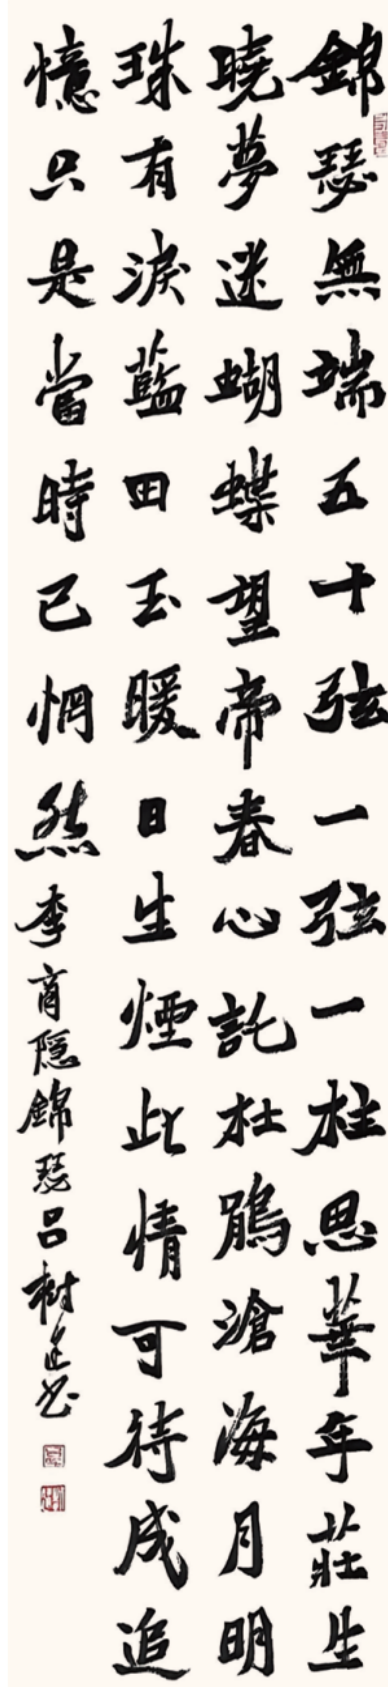 錦瑟無端五十弦一弦一柱思華年莊生
曉夢迷蝴蝶望帝春心託杜鵑滄海月明
珠有淚藍田玉暖日生煙此情可待成追
憶只是當時已惘然李商隐錦瑟吕樹书